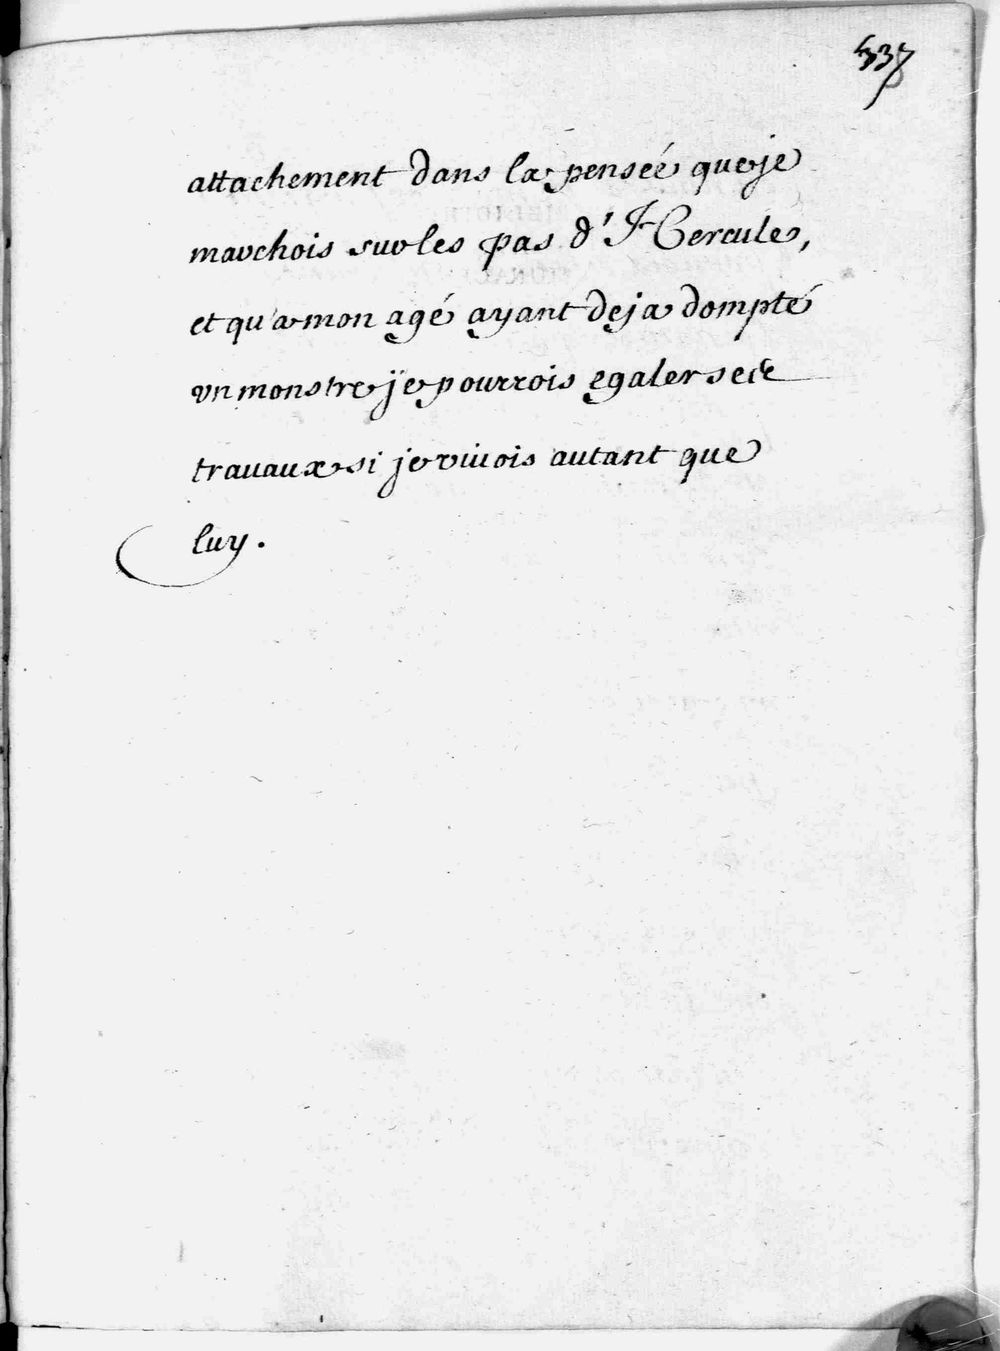 537
attachement dans la pensée que je
marchois sur les pas d'Hercule,
et qu'a mon agé ayant deja dompté
vn monstre je pourrois egaler ses
travaux si je viuois autant que
luy.